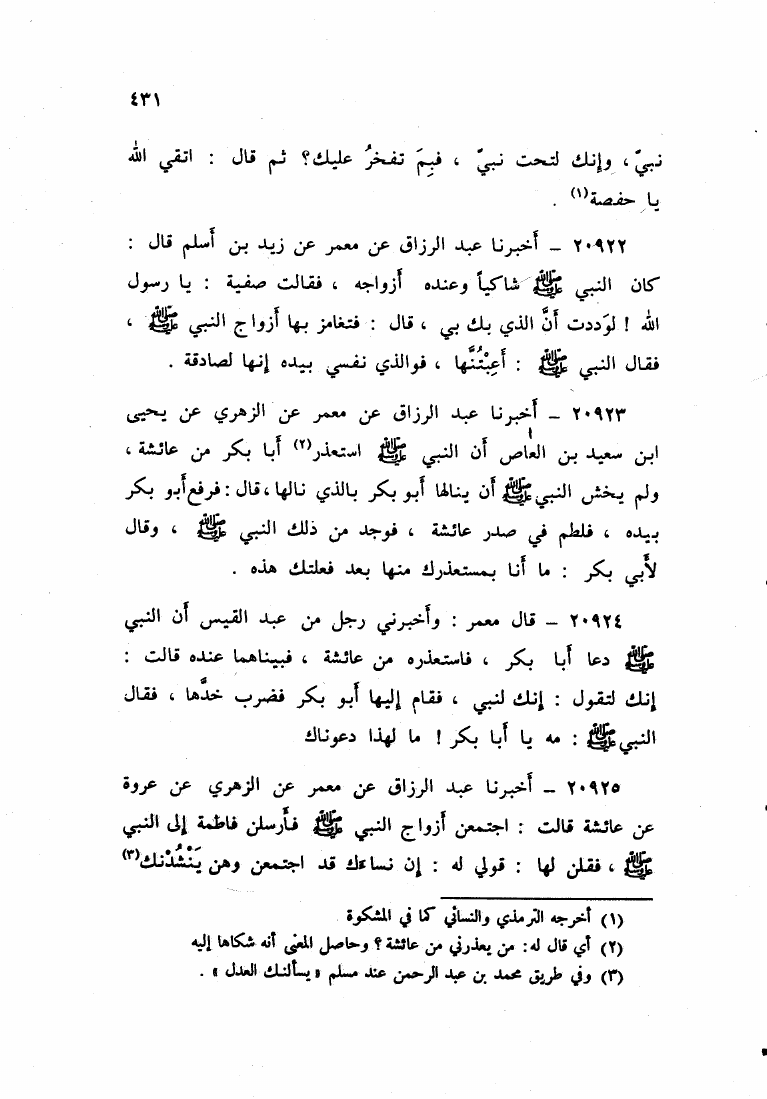 ٤٣١
نبيّ، وإنك لتحت نبيّ ، فبِمَ تفخرُ عليك؟ ثم قال : اتقي الله
يا حفصة(١) .
٢٠٩٢٢ – أخبرنا عبد الرزاق عن معمر عن زيد بن أسلم قال :
كان النبي ﷺ شاكياً وعنده أزواجه ، فقالت صفية : يا رسول
الله ! لوَددت أنَّ الذي بك بي ، قال : فتغامز بها أزواج النبي ﷺ ،
فقال النبي ﷺ : أعِبْتُنَّها ، فوالذي نفسي بيده إنها لصادقة .
٢٠٩٢٣ – أخبرنا عبد الرزاق عن معمر عن الزهري عن يحيى
ابن سعيد بن العاص أن النبي ﷺ استعذر(٢) أبا بكر من عائشة ،
ولم يخش النبي ﷺ أن ينالها أبو بكر بالذي نالها ، قال : فرفع أبو بكر
بيده ، فلطم في صدر عائشة ، فوجد من ذلك النبي ﷺ ، وقال
لأبي بكر : ما أنا بمستعذرك منها بعد فعلتك هذه .
٢٠٩٢٤ – قال معمر : وأخبرني رجل من عبد القيس أن النبي
ﷺ دعا أبا بكر ، فاستعذره من عائشة ، فبيناهما عنده قالت :
إنك لتقول : إنك لنبي ، فقام إليها أبو بكر فضرب خدَّها ، فقال
النبي ﷺ : مه يا أبا بكر ! ما لهذا دعوناك
٢٠٩٢٥ – أخبرنا عبد الرزاق عن معمر عن الزهري عن عروة
عن عائشة قالت : اجتمعن أزواج النبي ﷺ فأرسلن فاطمة إلى النبي
ﷺ ، فقلن لها : قولي له : إن نساءك قد اجتمعن وهن يَنْشُدْنك(٣)
(١) أخرجه الترمذي والنسائي كما في المشكوة
(٢) أي قال له: من يعذرني من عائشة ؟ وحاصل المعنى أنه شكاها إليه
(٣) وفي طريق محمد بن عبد الرحمن عند مسلم « يسألنك العدل » .